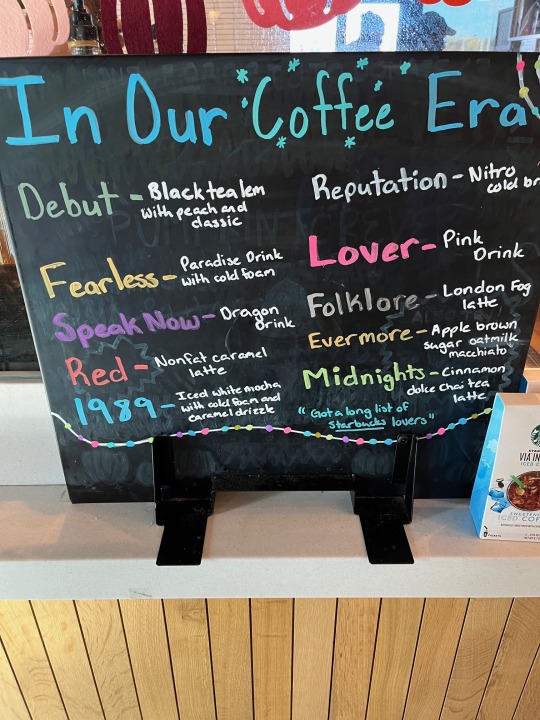 In Our Coffee Era
Debut - Black tea lem
with peach and
classic
Fearless - Paradise Drink
with cold foam
Speak Now - Dragon
drink
Red - Nonfat caramel
latte
1989 - Iced white mocha
with cold foam and
caramel drizzle
Reputation - Nitro
cold br
Lover - Pink
Drink
Folklore - London Fog
latte
Evermore - Apple brown
sugar oatmilk
macchiato
Midnights - Cinnamon
dolce chai tea
latte
"Got a long list of
Starbucks lovers"
VIA IN
ICED C
SWEETENE
ICED COF